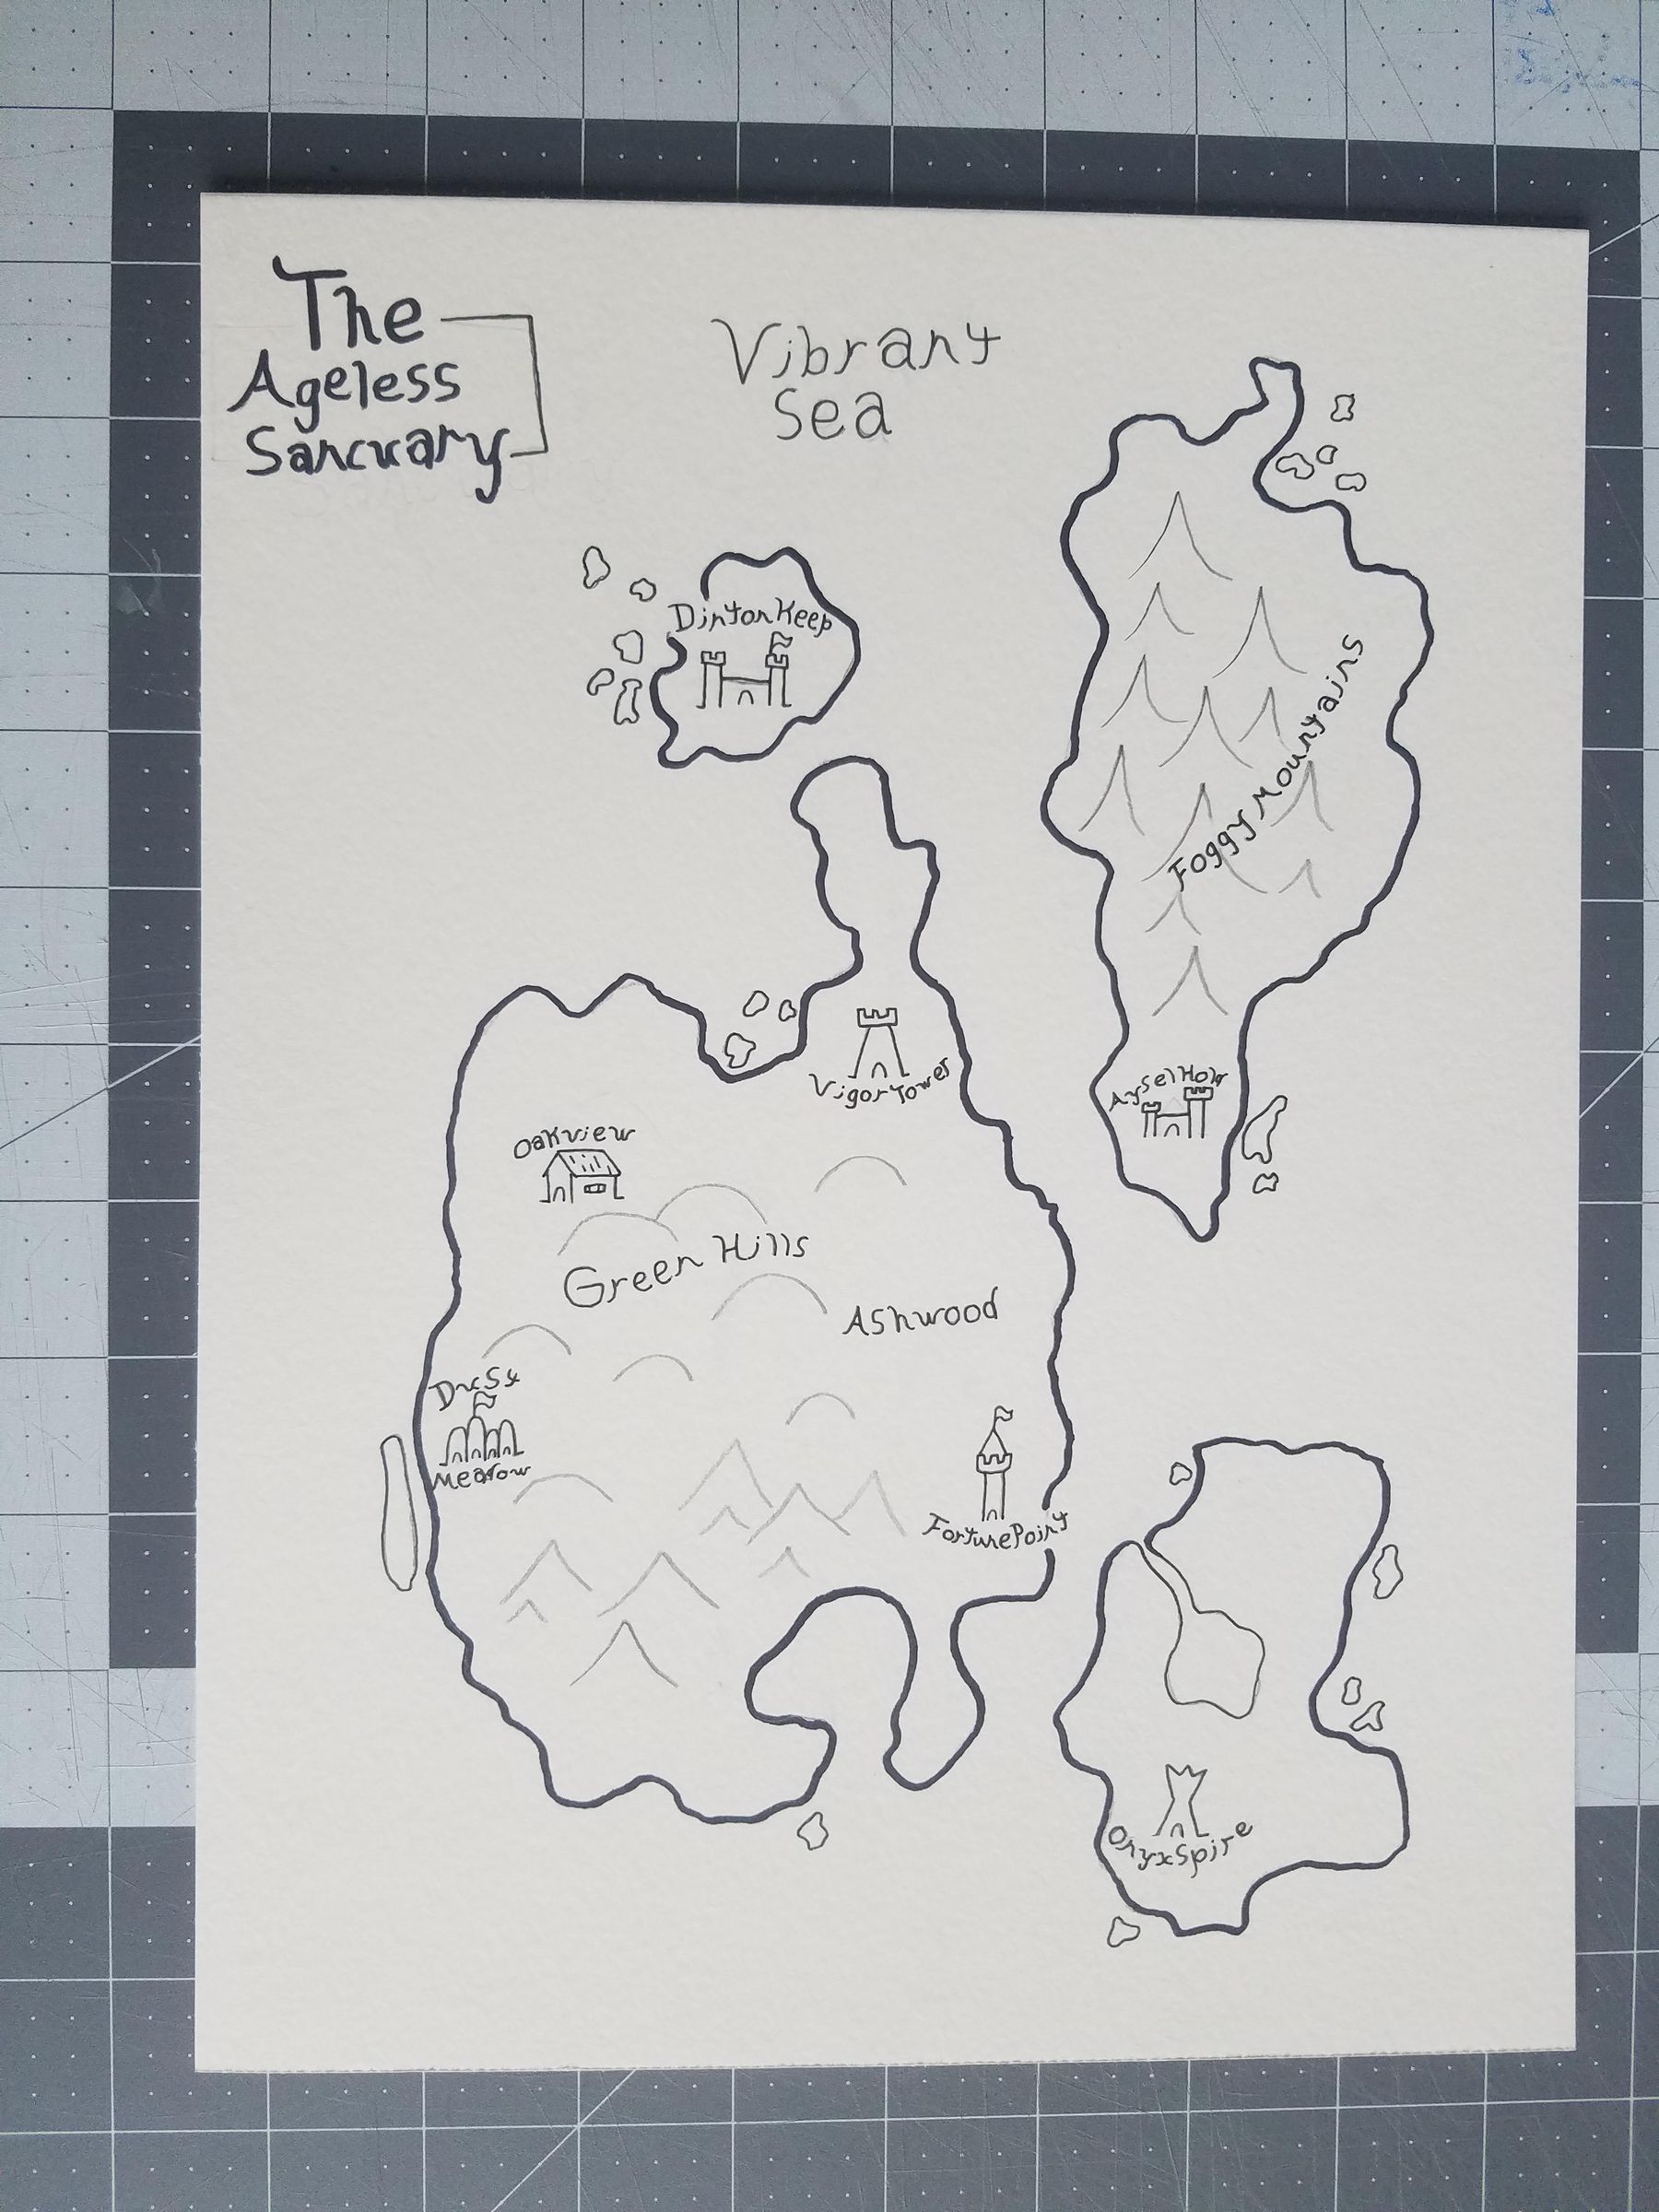 The
Ageless
Sancuary
Vibrant
Sea
Dinton Keep
Foggy Mountains
Vigor Tower
Aysel Hold
Oakview
Green Hills
Ashwood
Dust
Meadow
Fortune Point
Onyx Spire